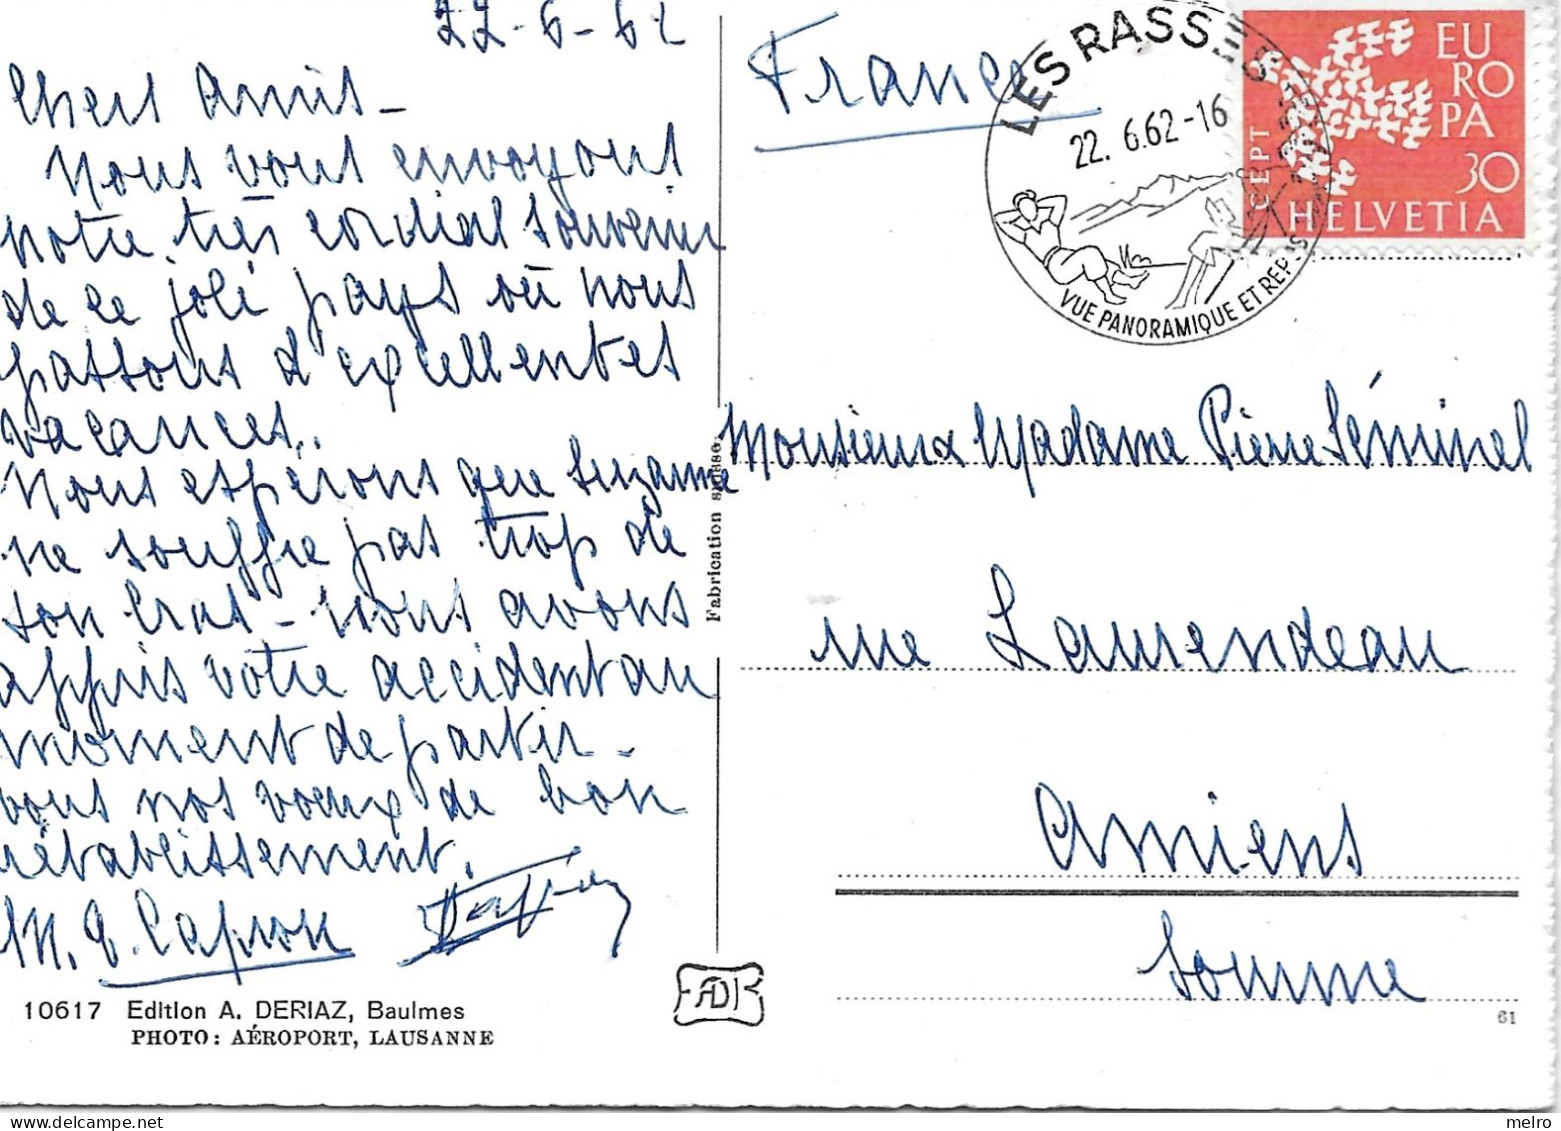 22-6-62
Chers Amis -
Nous vous envoyons
notre très cordial souvenir
de ce joli pays où nous
passons d'excellentes
vacances.
Nous espérons que Suzanne
ne souffre pas trop de
son bras - nous avons
appris votre accident au
moment de partir -
vous nos voeux de bon
rétablissement.
M. G. Capron
10617 Edition A. DERIAZ, Baulmes
PHOTO: AÉROPORT, LAUSANNE
Fabrication suisse.
France
LES RASSES
22. 6.62-16
VUE PANORAMIQUE ET REPOS
EU
RO
PA
CEPT
30
HELVETIA
Monsieur & Madame Pierre Séminel
rue Laurendeau
Amiens
Somme
61
melro